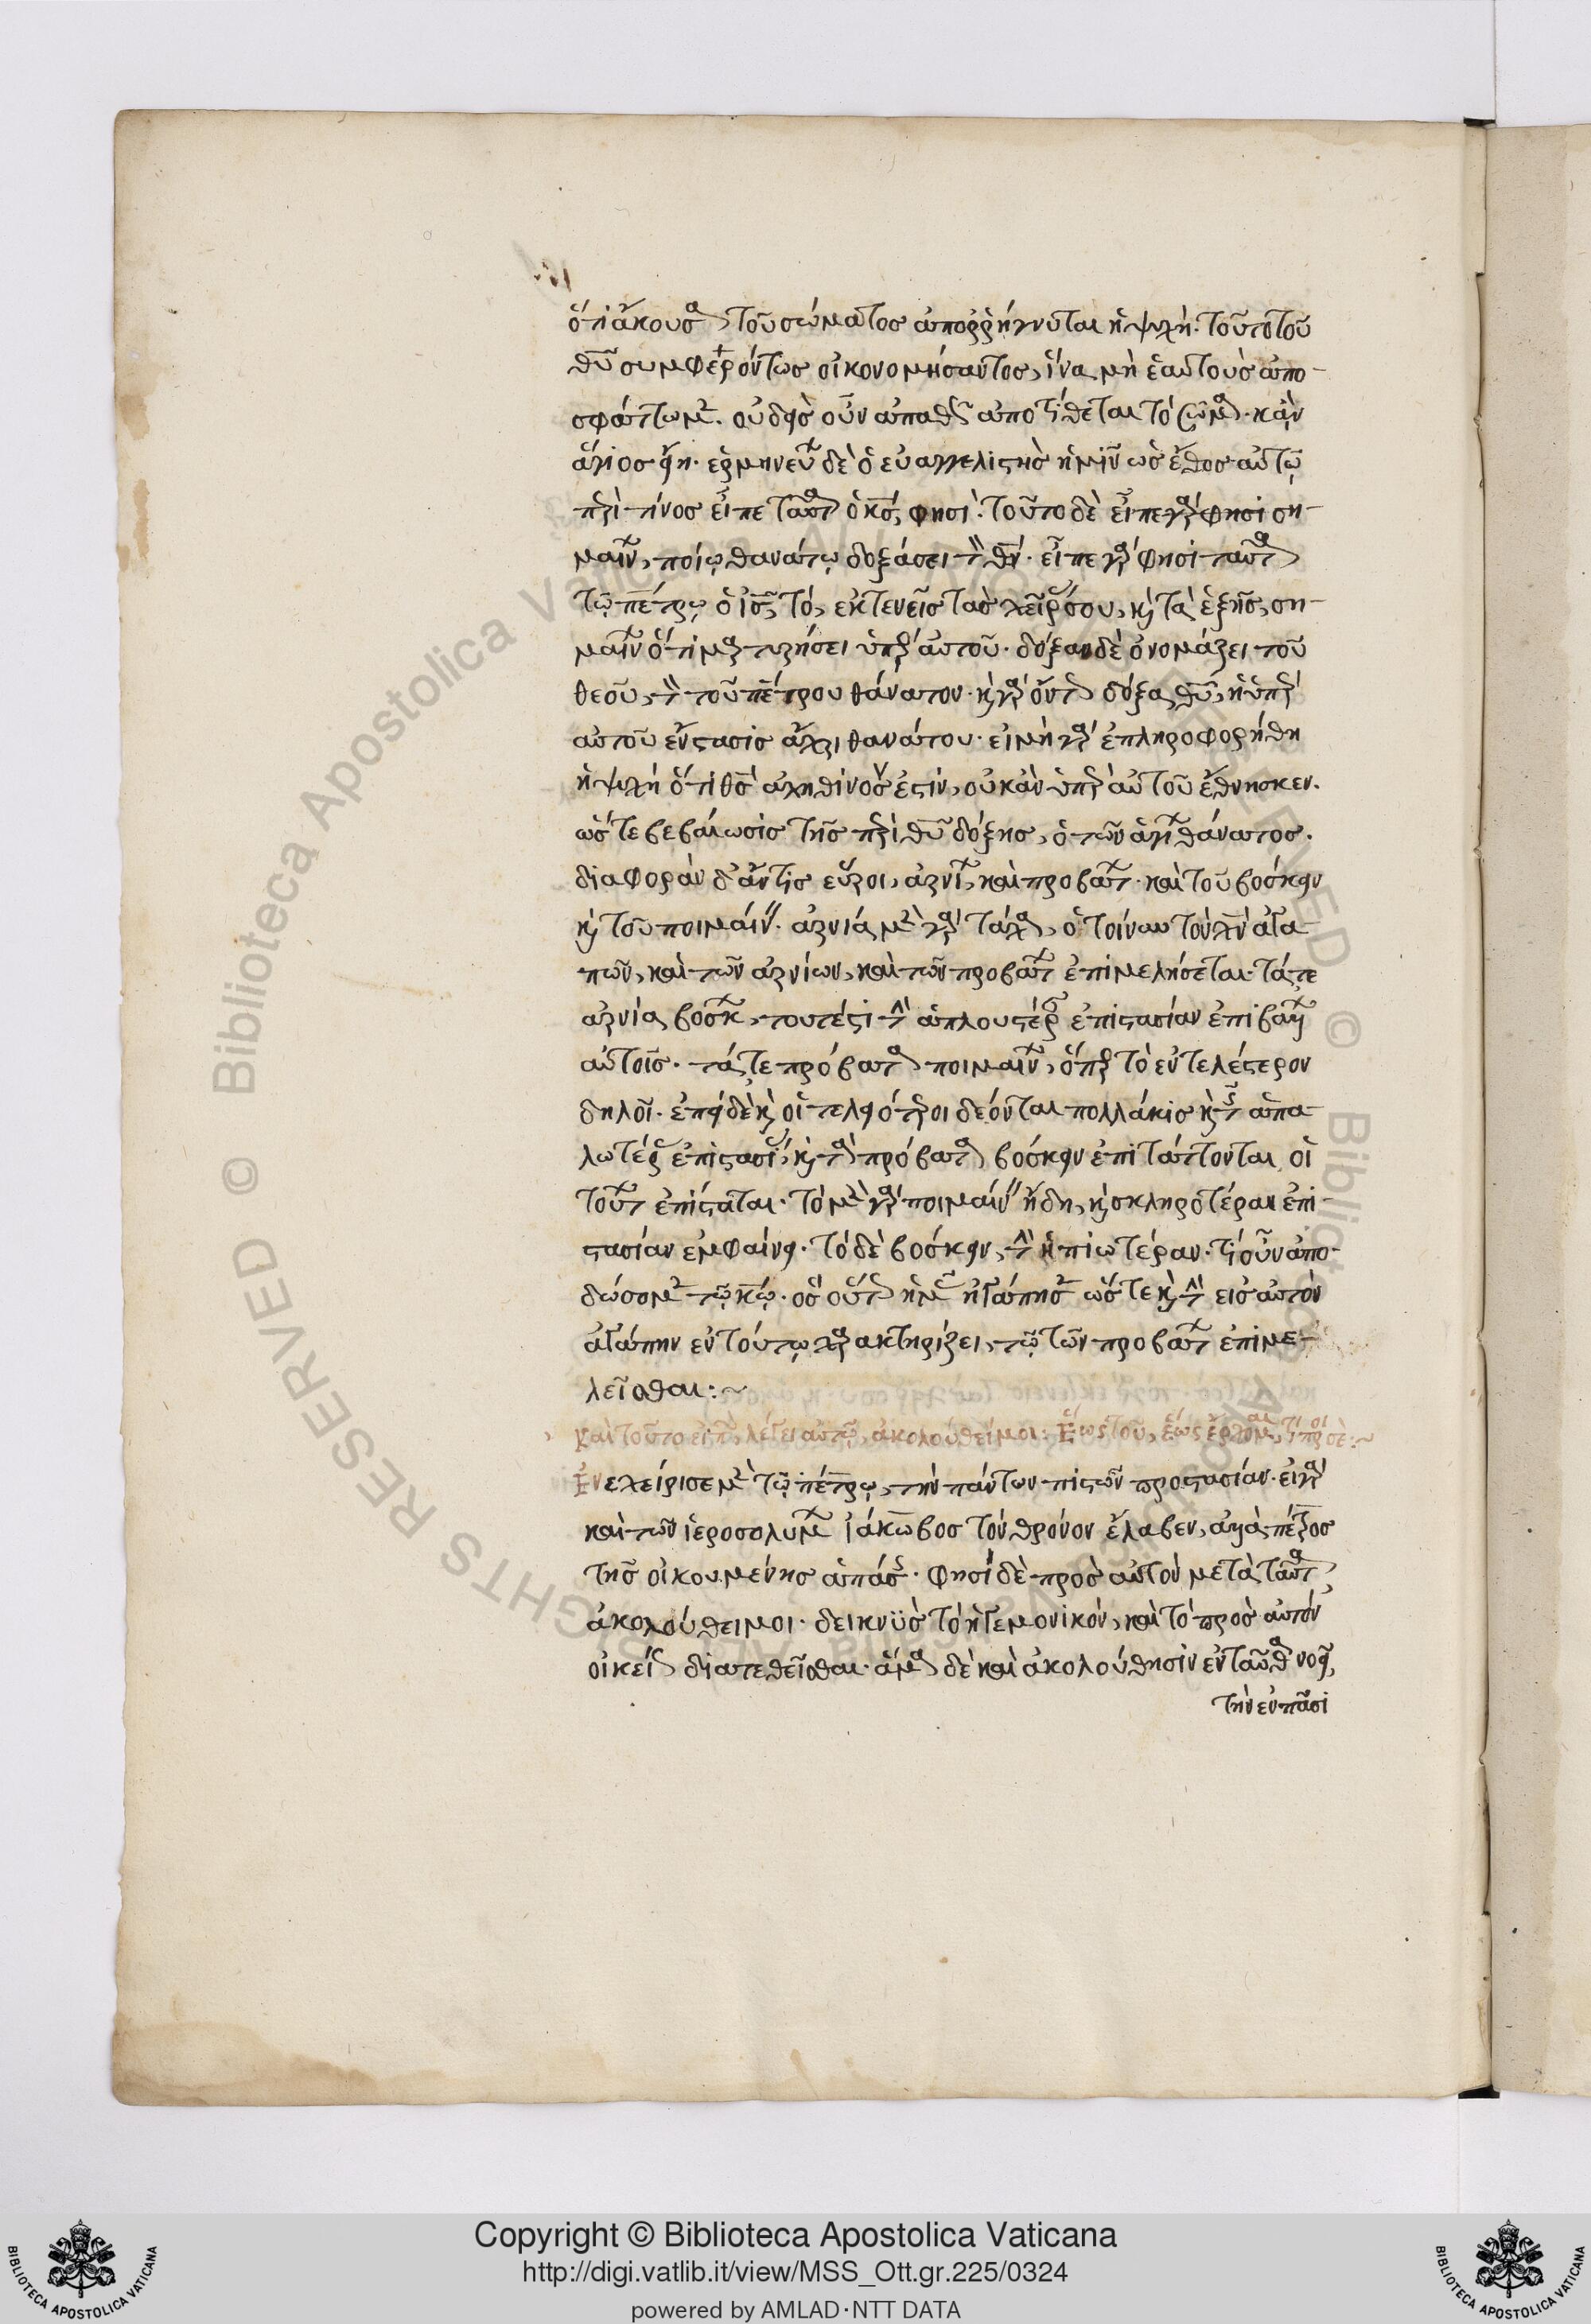 ὅτι ἄκουσα τοῦ σώματος ἀπορρήγνυται ἡ ψυχή· τοῦτο τοῦ
θῦ συμφερόντως οἰκονομήσαντος, ἵνα μὴ ἑαυτοὺς ἀπο-
σφάττωμεν. οὐδεὶς οὖν ἀπαθῶς ἀποτίθεται τὸ σῶμα· κἂν
ἅγιος εἴη. ἑρμηνεύων δὲ ὁ εὐαγγελιστὴς ἡμῖν ὡς ἔθος αὐτῷ
περὶ τίνος εἶπε ταῦτα ὁ κς, φησί· τοῦτο δὲ εἶπε γὰρ φησὶ ση-
μαίνων, ποίῳ θανάτῳ δοξάσει τὸν θν. εἶπε γὰρ φησὶ ταῦτα
τῷ πέτρῳ ὁ ις, τὸ, ἐκτενεῖς τὰς χεῖράς σου, κ τὰ ἑξῆς, ση-
μαίνων ὅτι μαρτυρήσει ὑπὲρ αὐτοῦ. δόξαν δὲ ὀνομάζει τοῦ
θεοῦ, τὸν τοῦ πέτρου θάνατον. κ γὰρ ὄντως δόξα θῦ, ἡ ὑπὲρ
αὐτοῦ ἔνστασις ἄχρι θανάτου. εἰ μὴ γὰρ ἐπληροφορήθη
ἡ ψυχὴ ὅτι θς ἀληθινός ἐστιν, οὐκ ἂν ὑπὲρ αὐτοῦ ἔθνησκεν.
ὥστε βεβαίωσις τῆς περὶ θῦ δόξης, ὁ τῶν ἁγίων θάνατος.
διαφορὰν δ' ἄν τις εὕροι, ἀρνίων, καὶ προβάτων. καὶ τοῦ βόσκειν
κ τοῦ ποιμαίνειν. ἀρνία μὲν γὰρ τάχα, ὁ τοίνυν τὸν χν ἀγα-
πῶν, καὶ τῶν ἀρνίων, καὶ τῶν προβάτων ἐπιμελήσεται. τά τε
ἀρνία βόσκων, τουτέστι τὴν ἁπλουστέραν ἐπιστασίαν ἐπιβάλλων
αὐτοῖς. τά τε πρόβατα ποιμαίνων, ὅπερ τὸ ἐντελέστερον
δηλοῖ. ἐπεὶ δὲ κ οἱ τελειότεροι δέονται πολλάκις κ τῆς ἁπα-
λωτέρας ἐπιστασίας, κ τὰ πρόβατα βόσκειν ἐπιτάττονται οἱ
τούτων ἐπιστάται. τὸ μὲν γὰρ ποιμαίνειν ἤδη, κ σκληροτέραν ἐπι-
στασίαν ἐμφαίνει. τὸ δὲ βόσκειν, τὴν ἠπιωτέραν. τί οὖν ἀπο-
δώσομεν τῷ κῷ· ὃς οὕτως ἡμᾶς ἠγάπησεν ὥστε κ τὴν εἰς αὐτὸν
ἀγάπην ἐν τούτῳ χαρακτηρίζει, τῷ τῶν προβάτων ἐπιμε-
λεῖσθαι:~
καὶ τοῦτο εἰπὼν, λέγει αὐτῷ, ἀκολούθει μοι: Ἕως τοῦ, ἕως ἔρχομαι, τί πρὸς σέ:~
Ἐνεχείρισε μὲν τῷ πέτρῳ, τὴν πάντων πιστῶν προστασίαν. εἰ γὰρ
καὶ τῶν ἱεροσολύμων ἰάκωβος τὸν θρόνον ἔλαβεν, ἀλλὰ πέτρος
τῆς οἰκουμένης ἁπάσης. φησὶ δὲ πρὸς αὐτὸν μετὰ ταῦτα,
ἀκολούθει μοι. δεικνὺς τὸ ἡγεμονικὸν, καὶ τὸ πρὸς αὐτὸν
οἰκείως διατεθεῖσθαι. ἅμα δὲ καὶ ἀκολούθησιν ἐνταῦθα νοεῖ,
τὴν ἐν πᾶσι
Copyright © Biblioteca Apostolica Vaticana
http://digi.vatlib.it/view/MSS_Ott.gr.225/0324
powered by AMLAD·NTT DATA